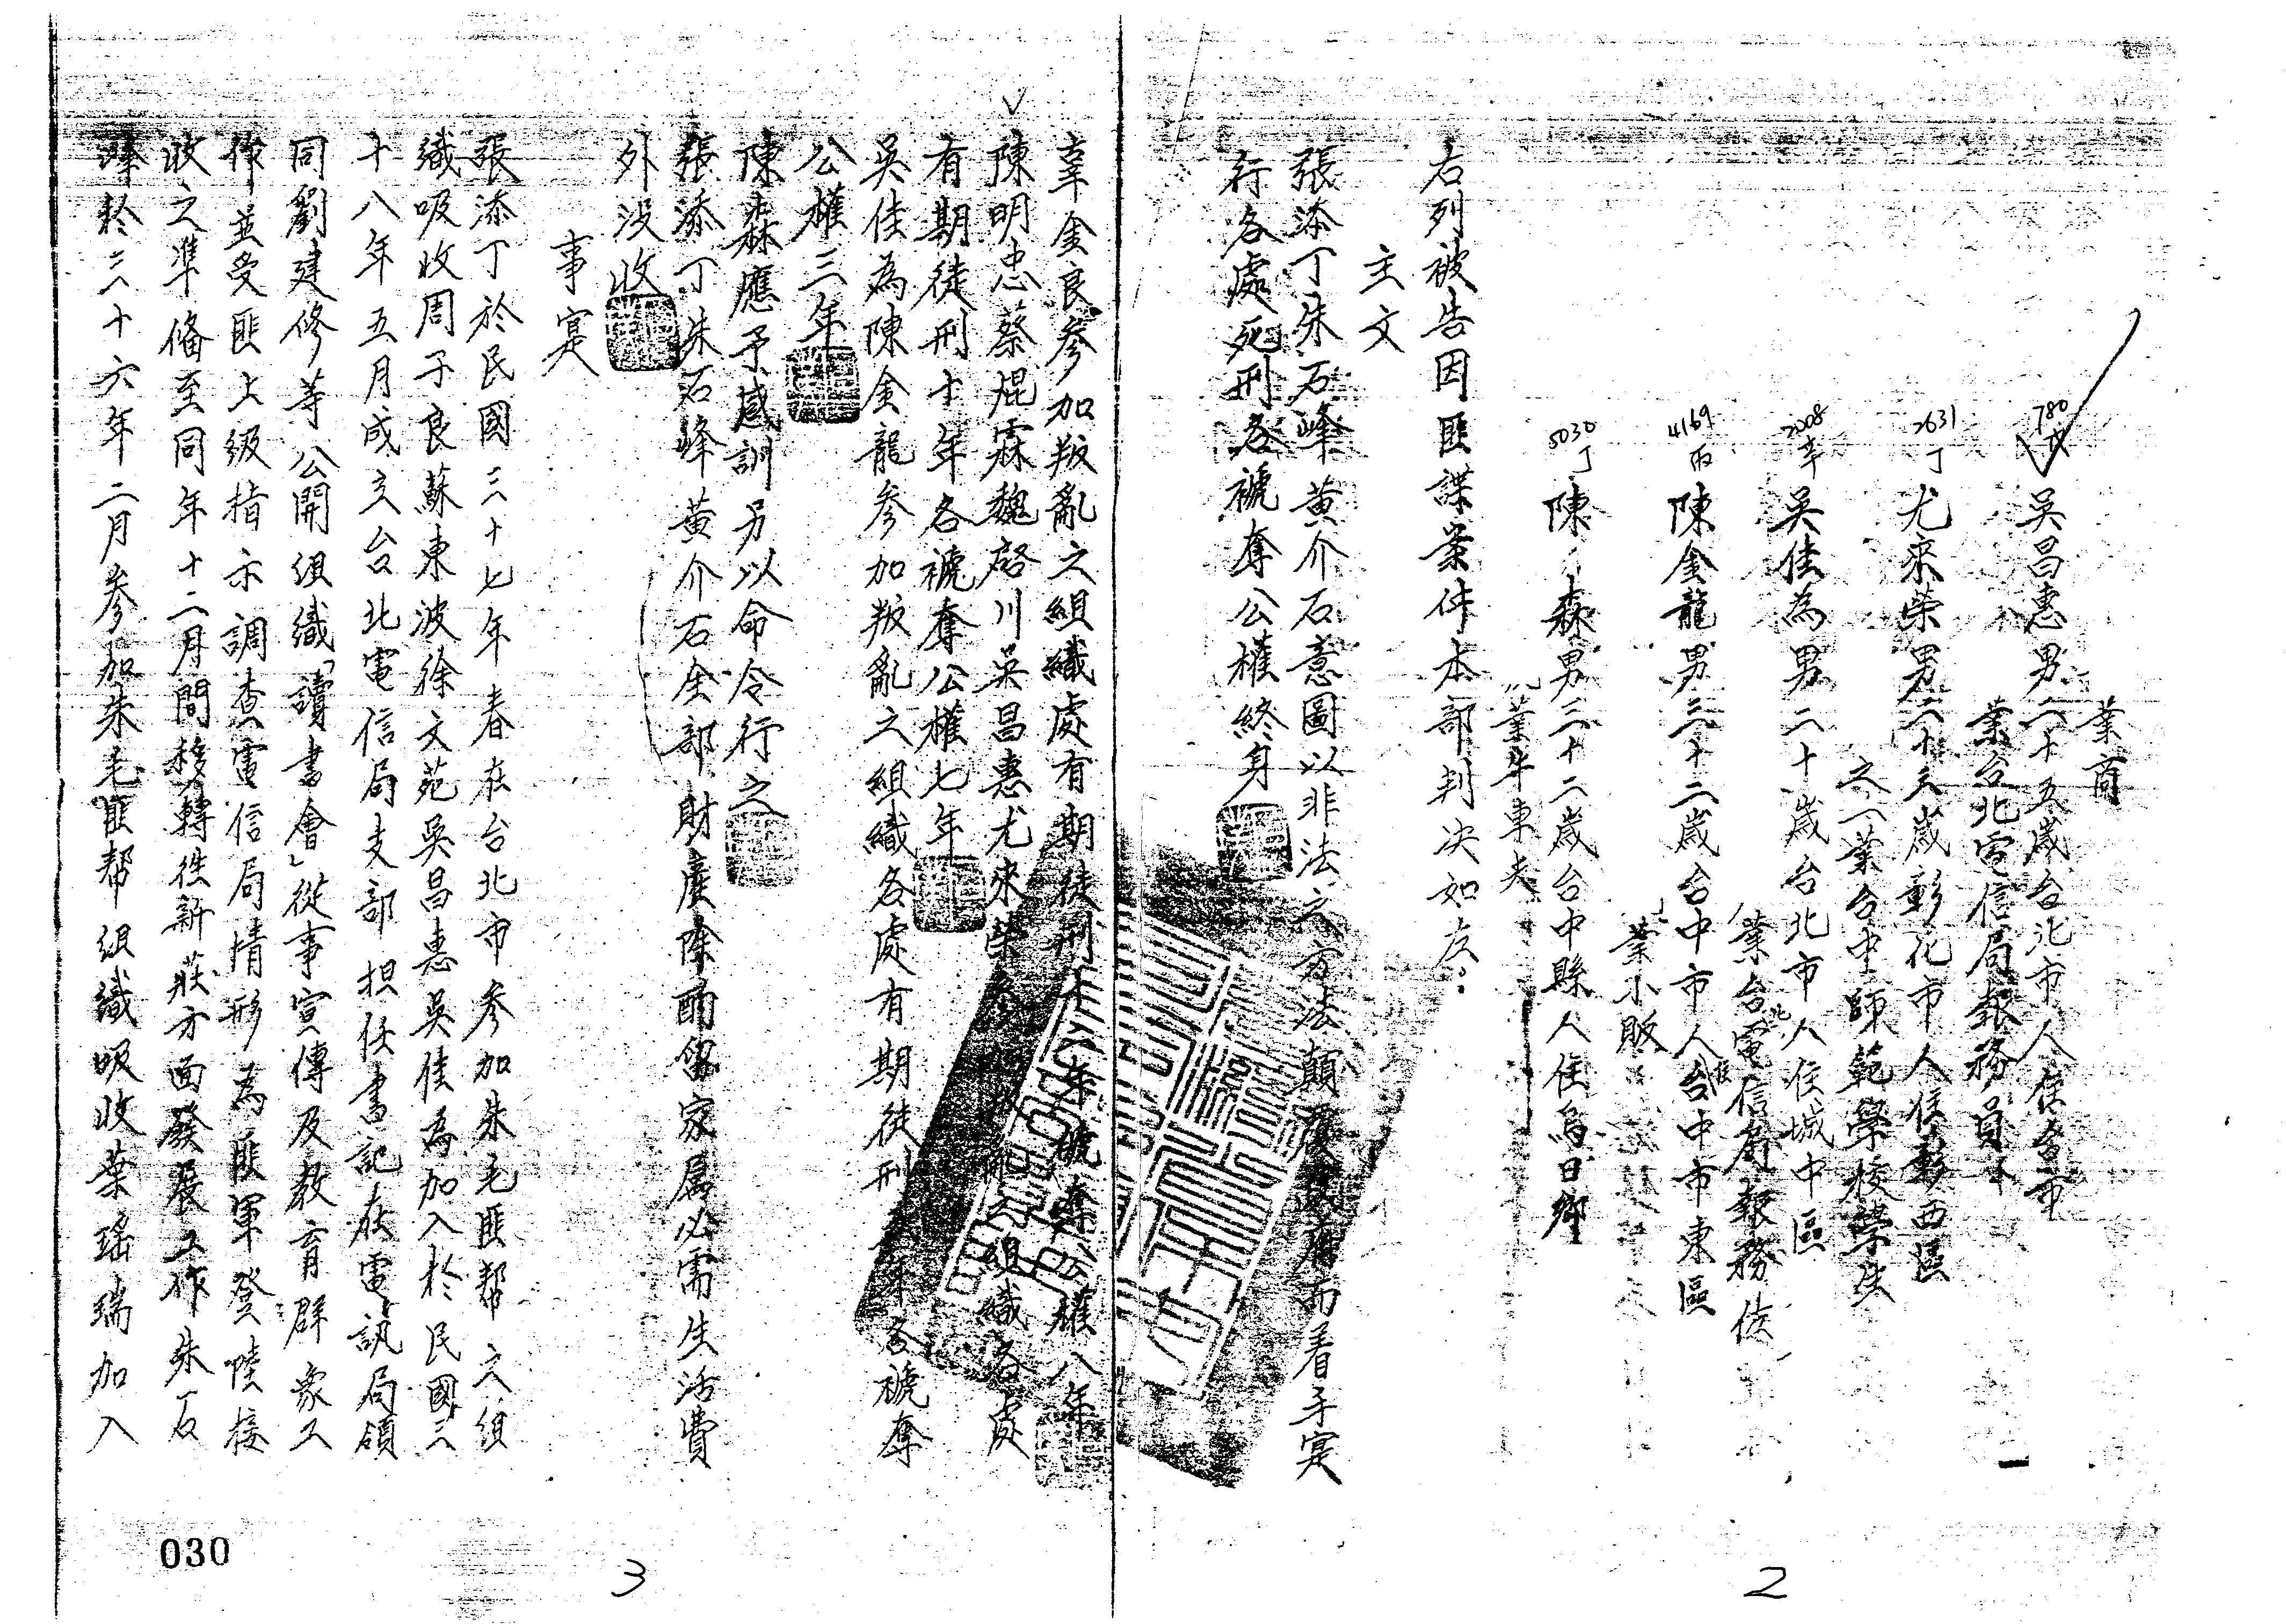 業商
780
吳昌惠男二十五歲台北市人住台北市
業台北電信局報務員
2631丁
尤來榮男二十三歲彰化市人住彰西區
之一業台中師範學校學生
2008辛
吳佳為男二十歲台北市人住城中區
業台北電信局報務佐
4169丙
陳金龍男三十二歲台中市人住台中市東區
業小販
5030丁
陳森男三十二歲台中縣人住烏日鄉
業牛車夫
右列被告因匪諜案件本部判決如左：
主文
張添丁朱石峰黃介石意圖以非法之方法顛覆政府而着手实
行各處死刑各褫奪公權終身
辜金良參加叛亂之組織處有期徒刑十五年褫奪公權八年
陳明忠蔡焜霖魏啓川吳昌惠尤來榮參加叛亂之組織各處
有期徒刑十年各褫奪公權七年
吳佳為陳金龍參加叛亂之組織各處有期徒刑年各褫奪
公權三年
陳森應予感訓另以命令行之
張添丁朱石峰黃介石全部財產除酌留家屬必需生活費
外沒收
事实
張添丁於民國三十七年春在台北市參加朱毛匪幫之組
織吸收周子良蘇東波徐文苑吳昌惠吳佳為加入於民國三
十八年五月成立台北電信局支部担任書記在電訊局領
同劉建修等公開組織「讀書會」從事宣傳及教育群眾工
作並受匪上級指示調查電信局情形為匪軍登陸接
收之準備至同年十二月間移轉往新莊方面發展工作朱石
峰於三十六年二月參加朱毛匪幫組織吸收葉瑤瑞加入
030
3
2